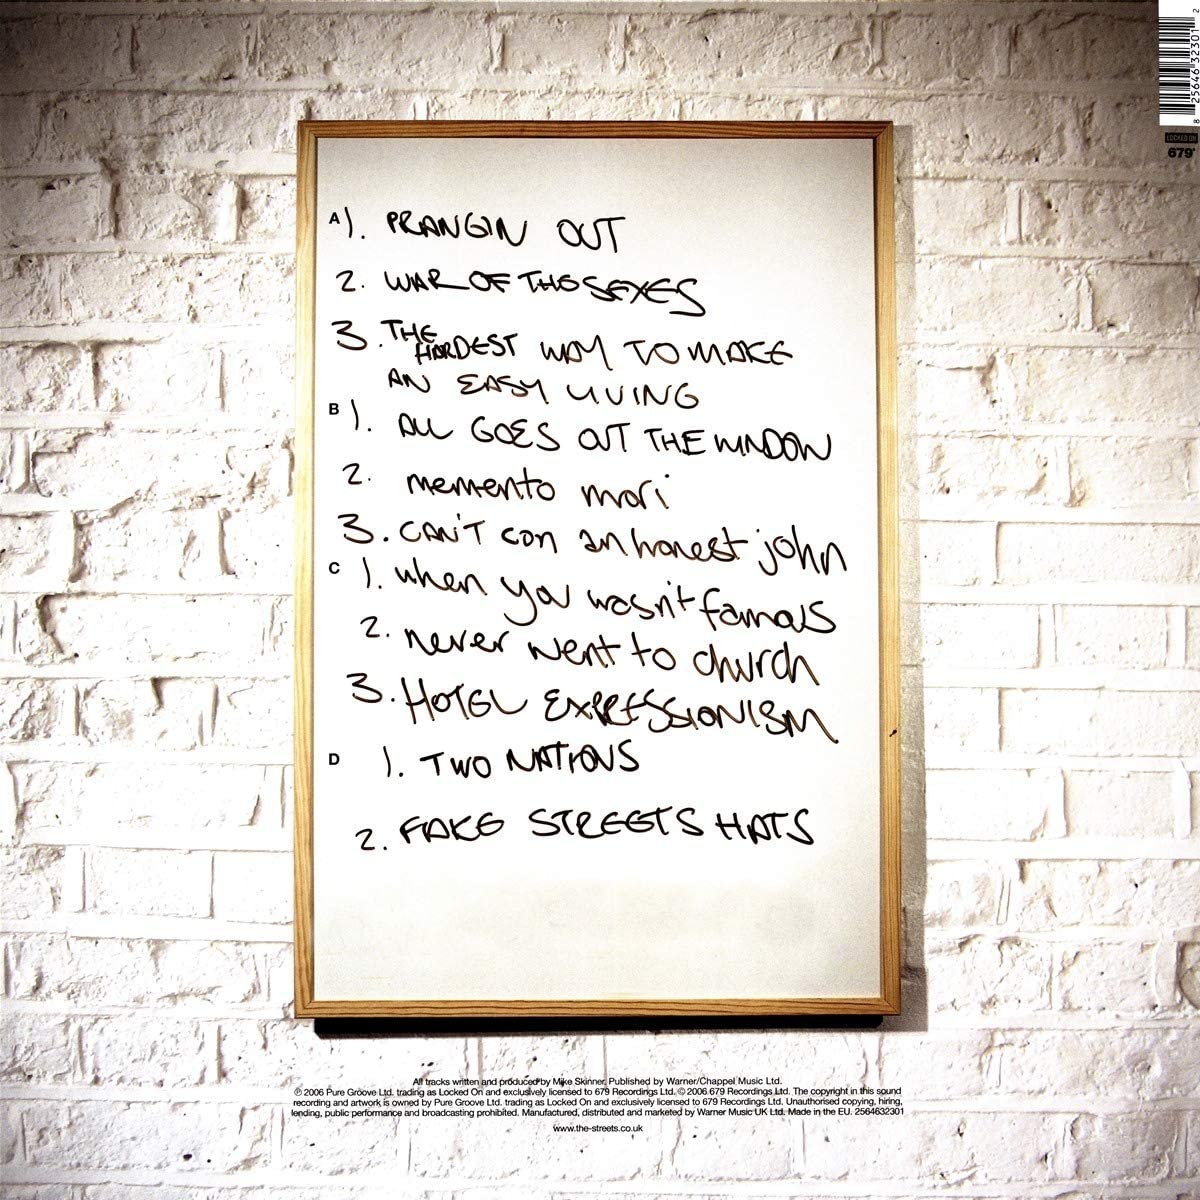 8 25646 32301 2
LOCKED ON
679
A 1. PRANGIN OUT
2. WAR OF THO SEXES
3. THE
HARDEST WAY TO MAKE
AN EASY LIVING
B 1. ALL GOES OUT THE WINDOW
2. memento mori
3. CAN'T con an honest john
C 1. when you wasn't famous
2. never went to church
3. HOTEL EXPRESSIONISM
D 1. TWO NATIONS
2. FAKE STREETS HATS
All tracks written and produced by Mike Skinner. Published by Warner/Chappel Music Ltd.
℗ 2006 Pure Groove Ltd. trading as Locked On and exclusively licensed to 679 Recordings Ltd. © 2006 679 Recordings Ltd. The copyright in this sound
recording and artwork is owned by Pure Groove Ltd. trading as Locked On and exclusively licensed to 679 Recordings Ltd. Unauthorised copying, hiring,
lending, public performance and broadcasting prohibited. Manufactured, distributed and marketed by Warner Music UK Ltd. Made in the EU. 2564632301
www.the-streets.co.uk